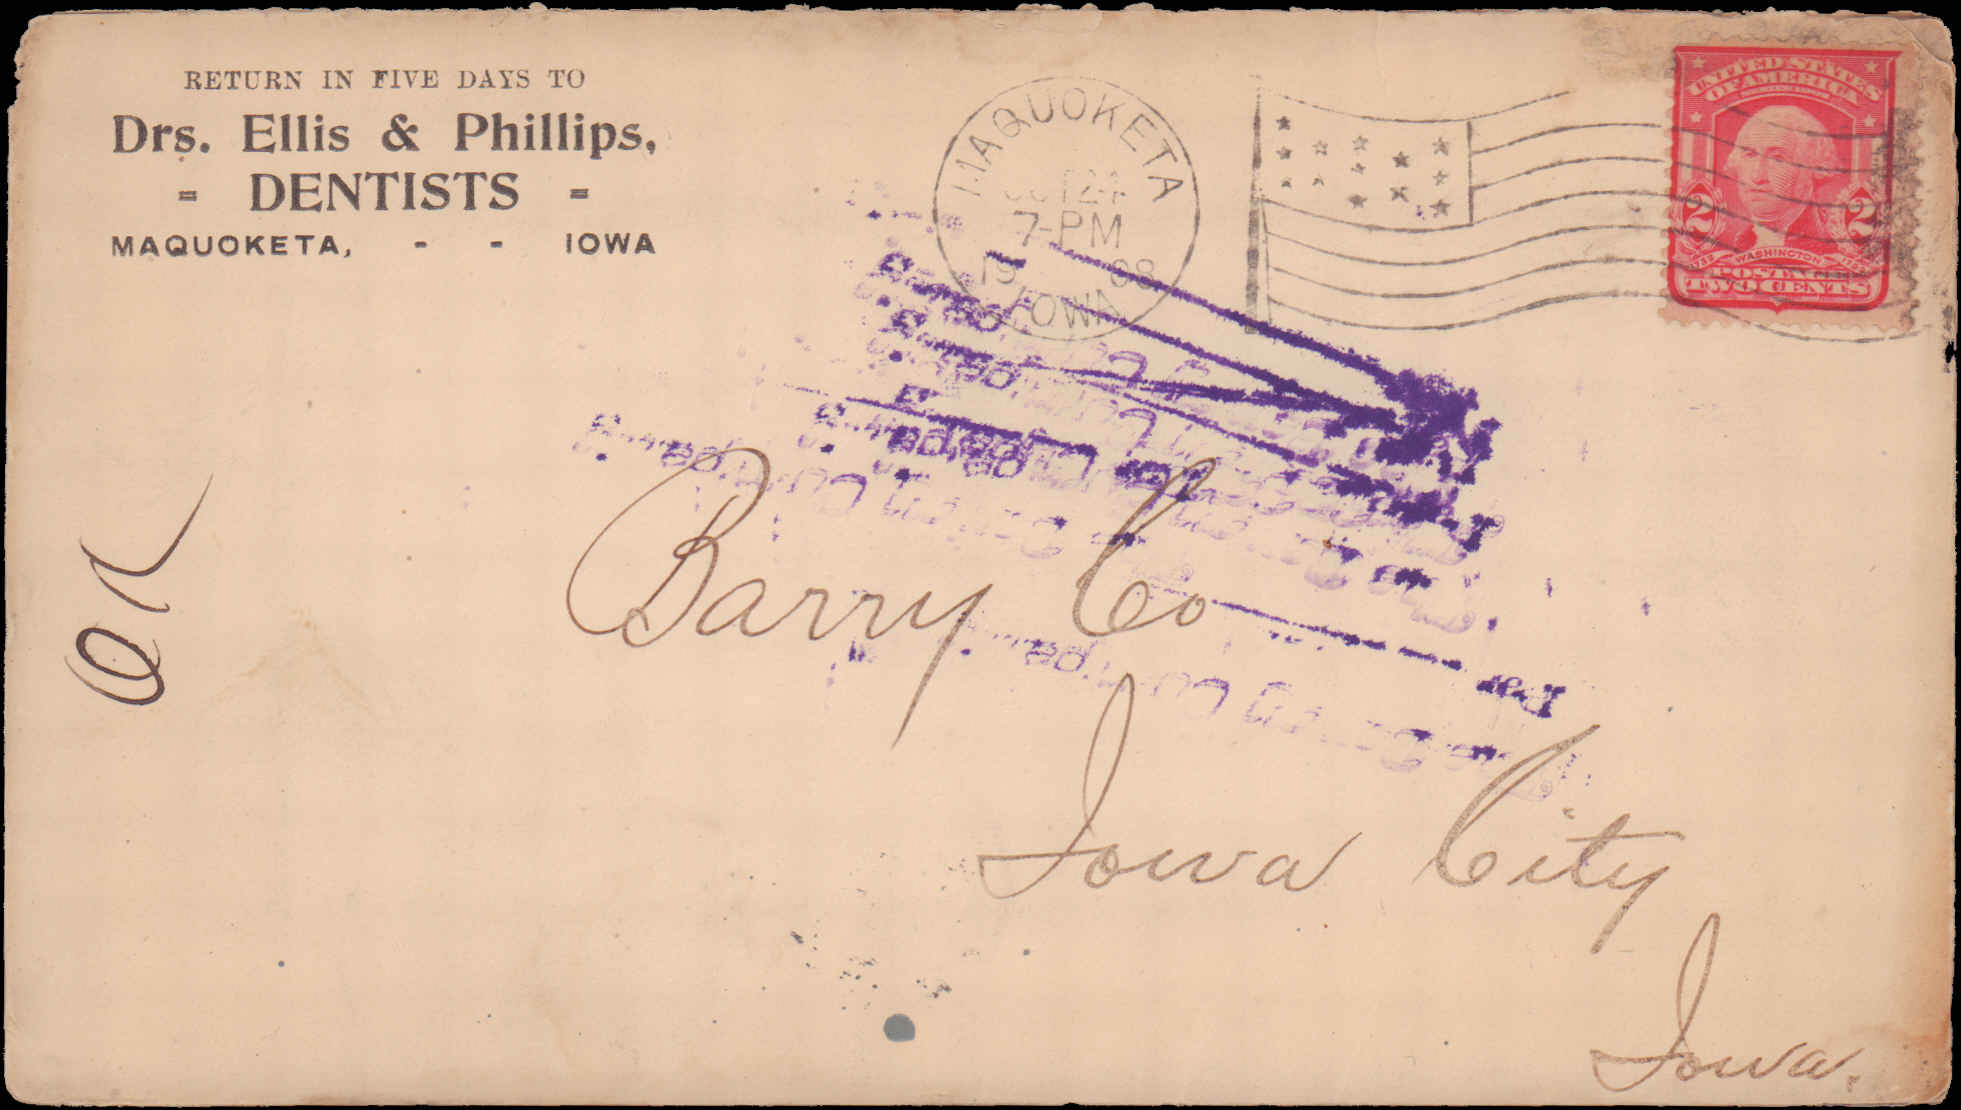 RETURN IN FIVE DAYS TO
Drs. Ellis & Phillips,
= DENTISTS =
MAQUOKETA, - - IOWA
MAQUOKETA
OCT 24
7-PM
1908
IOWA
UNITED STATES
OF AMERICA
2 2
1732 WASHINGTON 1799
POSTAGE
TWO CENTS
OK
Barry Co
Iowa City
Iowa.